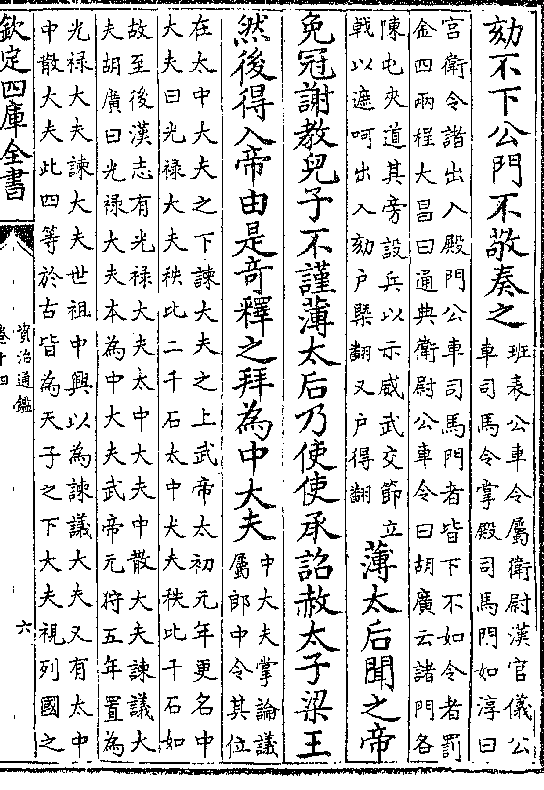 劾不下公門不敬奏之
班表公車令屬衛尉漢官儀公
車司馬令掌殿司馬門如淳曰
宮衛令諸出入殿門公車司馬門者皆下不如令者罰
金四兩程大昌曰通典衛尉公車令曰胡廣云諸門各
陳屯夾道其旁設兵以示威武交節立
戟以遮呵出入劾户槩翻又户得翻
薄太后聞之帝
免冠謝教兒子不謹薄太后乃使使承詔赦太子梁王
然後得入帝由是奇釋之拜為中大夫
中大夫掌論議
屬郎中令其位
在太中大夫之下諫大夫之上武帝太初元年更名中
大夫曰光禄大夫秩比二千石太中犬夫秩比千石如
故至後漢志有光禄大夫太中大夫中散大夫諫議大
夫胡廣曰光禄大夫本為中大夫武帝元狩五年置為
光禄大夫諫大夫世祖中興以為諫議大夫又有太中
中散大夫此四等於古皆為天子之下大夫視列國之
欽定四庫全書
資治通鑑
卷十四
六